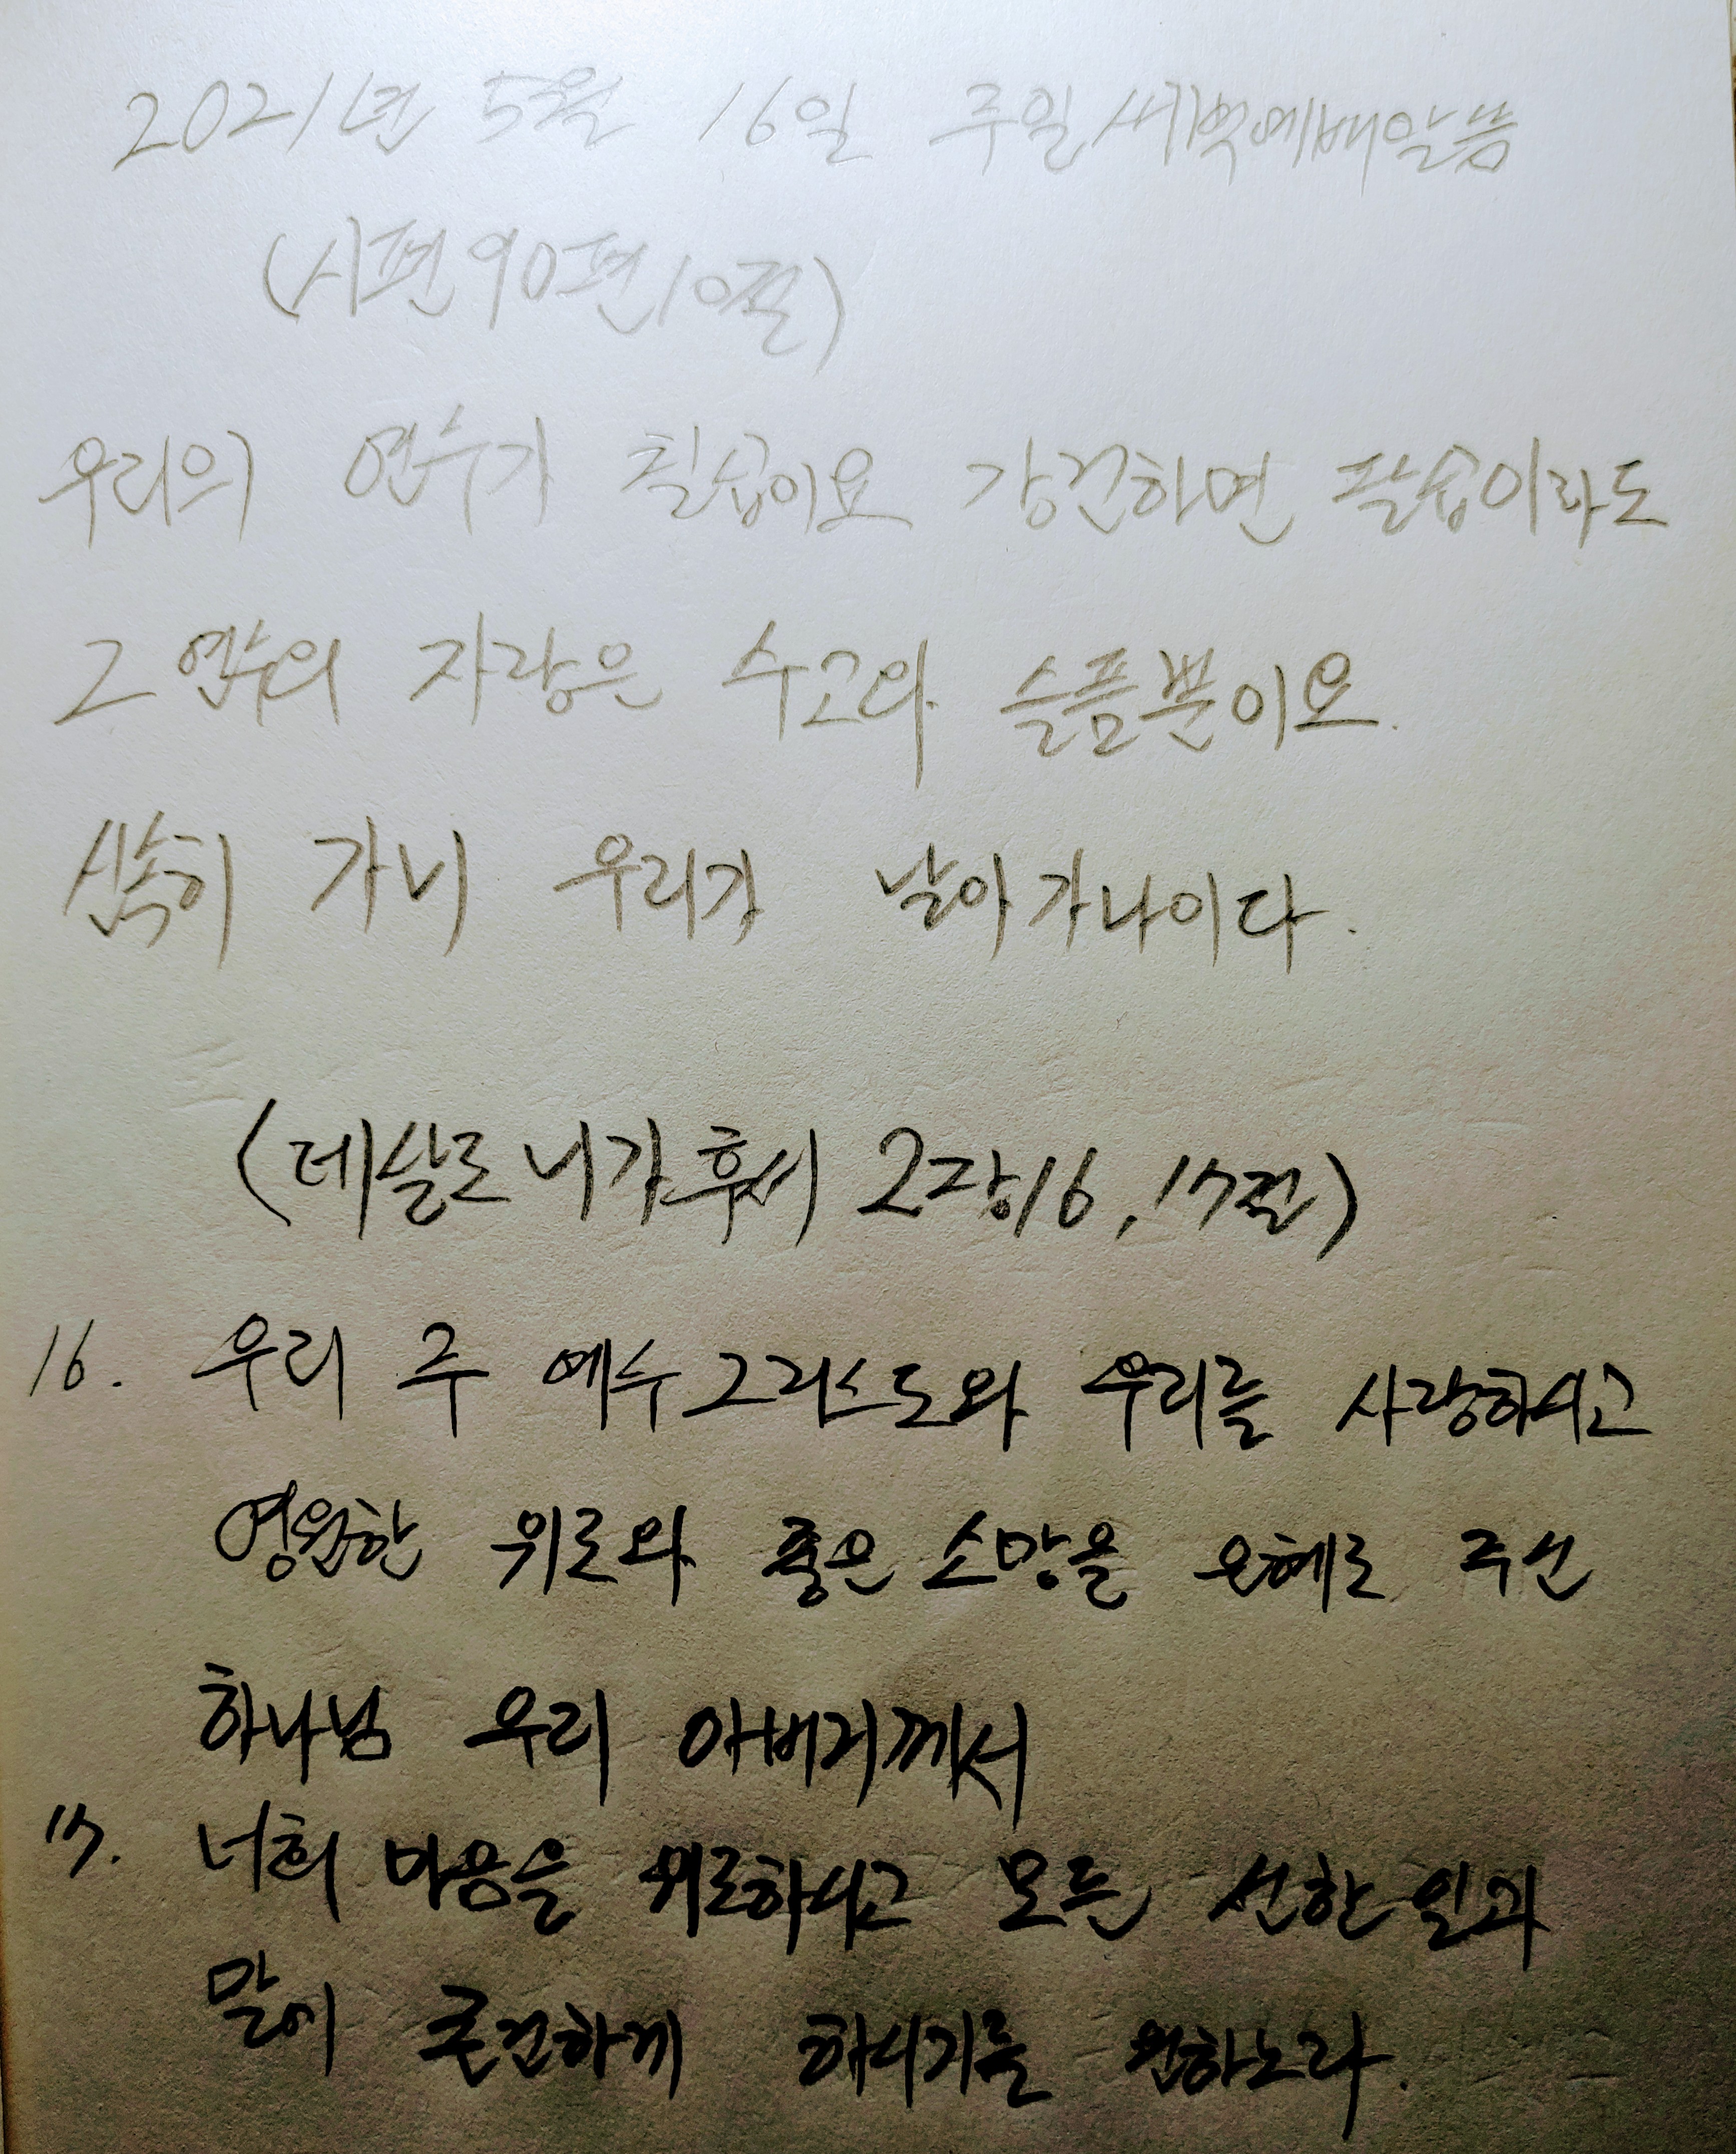 2021년 5월 16일 주일새벽예배말씀
(시편90편10절)
우리의 연수가 칠십이요 강건하면 팔십이라도
그 연수의 자랑은 수고와 슬픔뿐이요.
신속히 가니 우리가 날아가나이다.
(데살로니가후서 2장16,17절)
16. 우리 주 예수그리스도와 우리를 사랑하시고
영원한 위로와 좋은 소망을 은혜로 주신
하나님 우리 아버지께서
17. 너희 마음을 위로하시고 모든 선한 일과
말에 굳건하게 하시기를 원하노라.